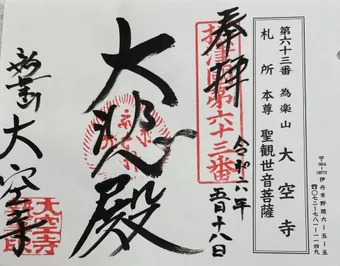 第六十三番 為楽山 大空寺
札所 本尊 聖観世音菩薩
〒664-0873 伊丹市野間六-五-五
☎〇七二-七八一-一一四九
奉拝
摂津国第六十三番
令和六年
五月十八日
大悲殿
為楽山
大空寺
大空寺